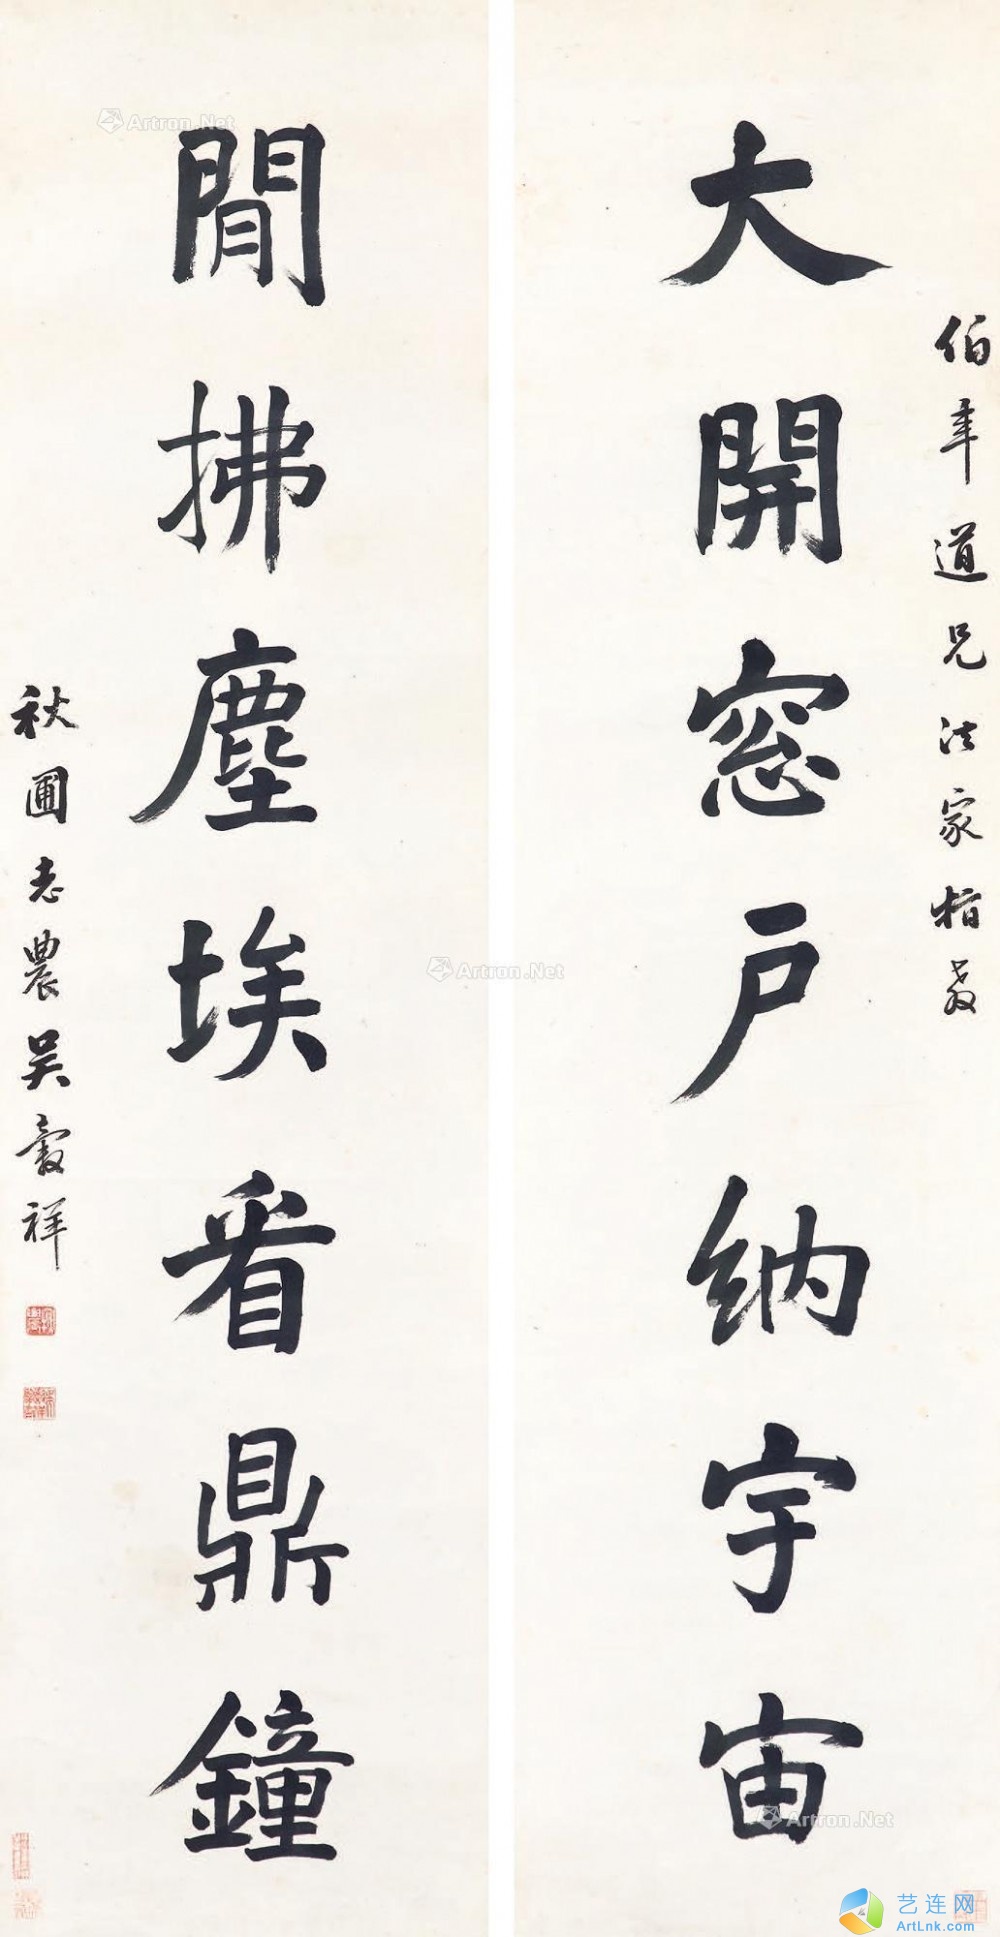 伯年道兄法家指教
大開窓戶納宇宙
閒拂塵埃看鼎鐘
秋圃老農吳穀祥
Artron.Net
Artron.Net
Artron.Net
艺连网
ArtLnk.com